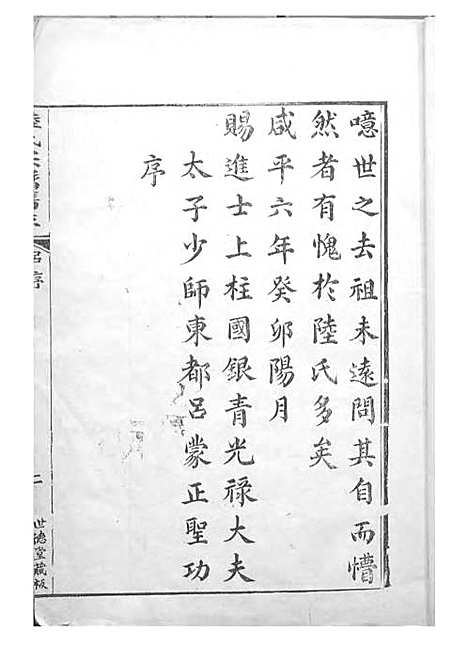 噫世之去祖未遠問其自而懵
然者有愧於陸氏多矣
咸平六年癸卯陽月
賜進士上柱國銀青光祿大夫
太子少師東都呂蒙正聖功
序
世德堂藏板